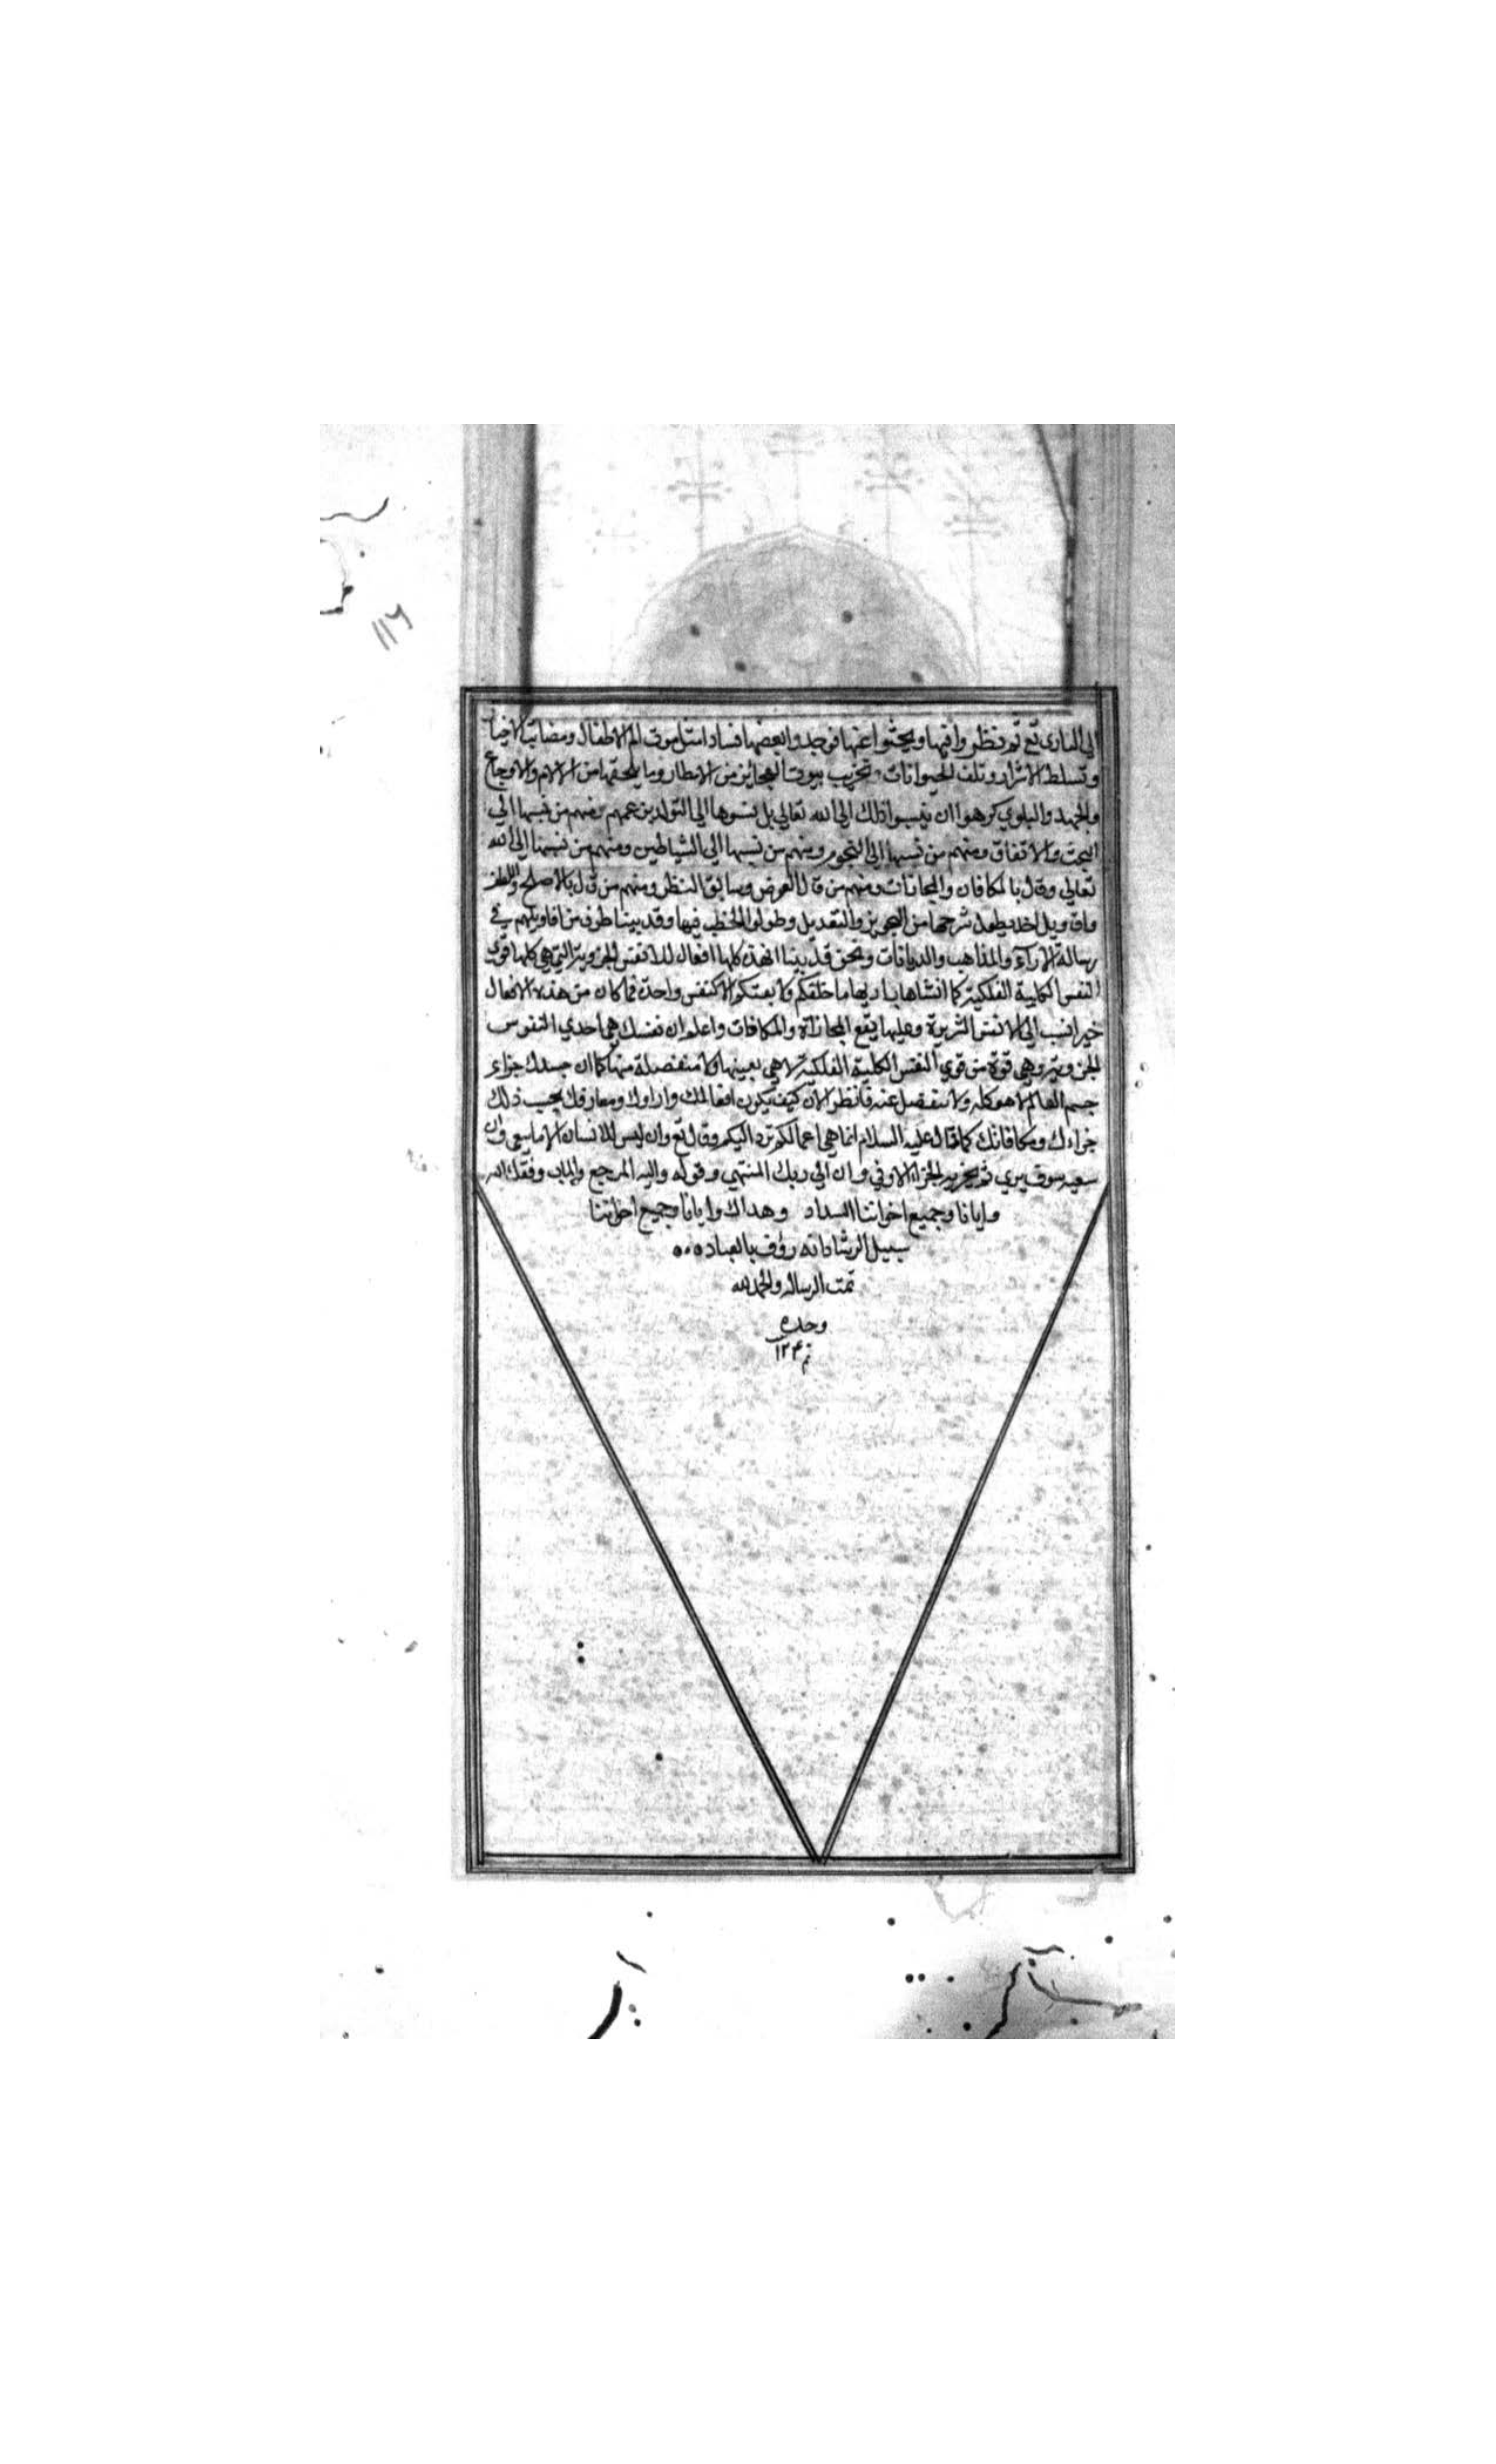 ١١٦
الي الباري تع ثم نظروا فيها وبحثوا عنها فوجدوا بعضها فسادا مثل موت الاطفال ومصائب الاخيار
وتسلط الاشرار وتلف الحيوانات وتخريب بيوت العجائز من الامطار وما يلحقها من الالام والاوجاع
والجهد والبلوي كرهوا ان ينسبوا ذلك الي الله تعالي بل نسبوها الي التولد بزعمهم ومنهم من نسبها الي
البخت والاتفاق ومنهم من نسبها الي النجوم ومنهم من نسبها الي الشياطين ومنهم من نسبها الي الله
تعالي وقال بالمكافات والمجازات ومنهم من قال العوض وسابق النظر ومنهم من قال بالاصلح واللطف
واقاويل اخر يطول شرحها من التجويز والتعديل وطولوا الخطب فيها وقد بينا طرف من اقاويلهم في
رسالة الاراء والمذاهب والديانات ونحن قد بينا ان هذه كلها افعال للانفس الجزوية التي هي كلها قوي
النفس الكلية الفلكية كما انشاها باريها ما خلقكم ولا بعثكم الا كنفس واحدة فما كان من هذه الافعال
خيرا نسب الي الانفس الشريرة وعليها يقع المجازاة والمكافات واعلم ان نفسك هي احدي النفوس
الجزوية وهي قوة من قوي النفس الكلية الفلكية لا هي بعينها ولا منفصلة منها كما ان جسدك جزء
جسم العالم لا هو كله ولا منفصل عنه فانظر الان كيف يكون افعالك واراؤك ومعارفك بحسب ذلك
جزاءك ومكافاتك كما قال عليه السلام انما هي اعمالكم ترد اليكم وقال تع وان ليس للانسان الا ما سعي وان
سعيه سوف يري ثم يجزيه الجزاء الاوفي وان الي ربك المنتهي وقوله واليه المرجع والماب وفقك الله
وايانا وجميع اخواننا السداد وهداك وايانا وجميع اخواننا
سبيل الرشاد انه رؤف بالعباد
تمت الرساله والحمد لله
وحده